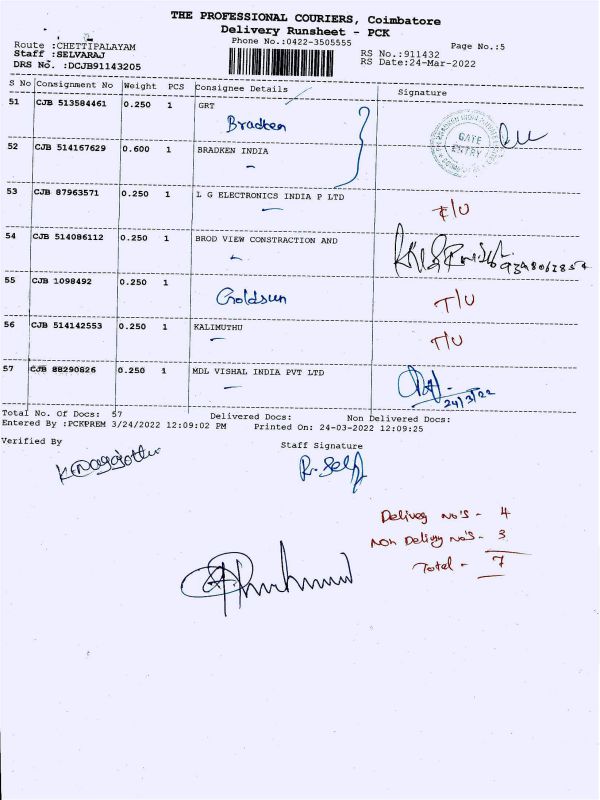 THE PROFESSIONAL COURIERS, Coimbatore
Delivery Runsheet - PCK
Phone No.:0422-3505555
Route :CHETTIPALAYAM
Page No.:5
Staff :SELVARAJ
RS No.:911432
DRS No. :DCJB91143205
RS Date:24-Mar-2022
S No Consignment No Weight PCS Consignee Details Signature
51 CJB 513584461 0.250 1 GRT
Bradken
GATE ENTRY
52 CJB 514167629 0.600 1 BRADKEN INDIA
53 CJB 87963571 0.250 1 L G ELECTRONICS INDIA P LTD
T/U
54 CJB 514086112 0.250 1 BROD VIEW CONSTRACTION AND
55 CJB 1098492 0.250 1
Goldsun T/U
56 CJB 514142553 0.250 1 KALIMUTHU
T/U
57 CJB 88290826 0.250 1 MDL VISHAL INDIA PVT LTD
24/3/22
Total No. Of Docs: 57 Delivered Docs: Non Delivered Docs:
Entered By :PCKPREM 3/24/2022 12:09:02 PM Printed On: 24-03-2022 12:09:25
Verified By Staff Signature
Delivey No's - 4
Non Delivy No's - 3
Total - 7